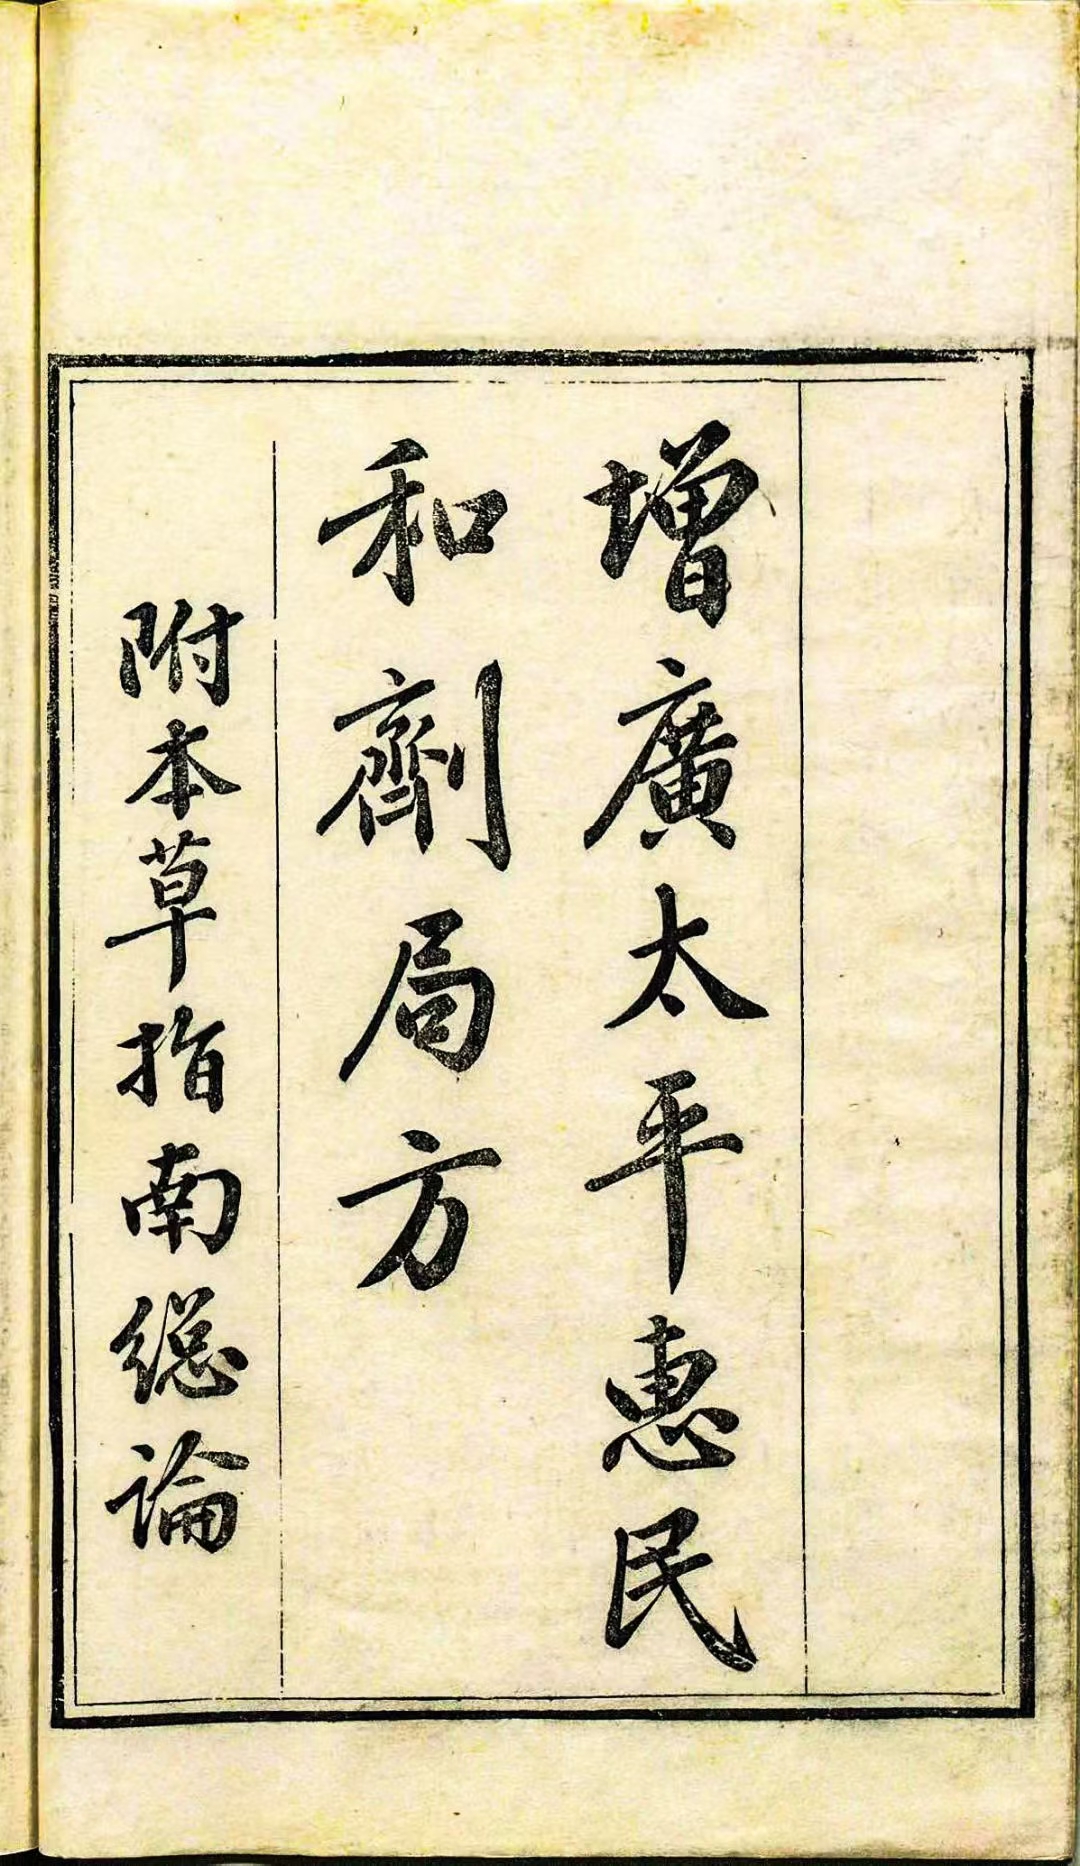 增廣太平惠民
和劑局方
附本草指南緫論